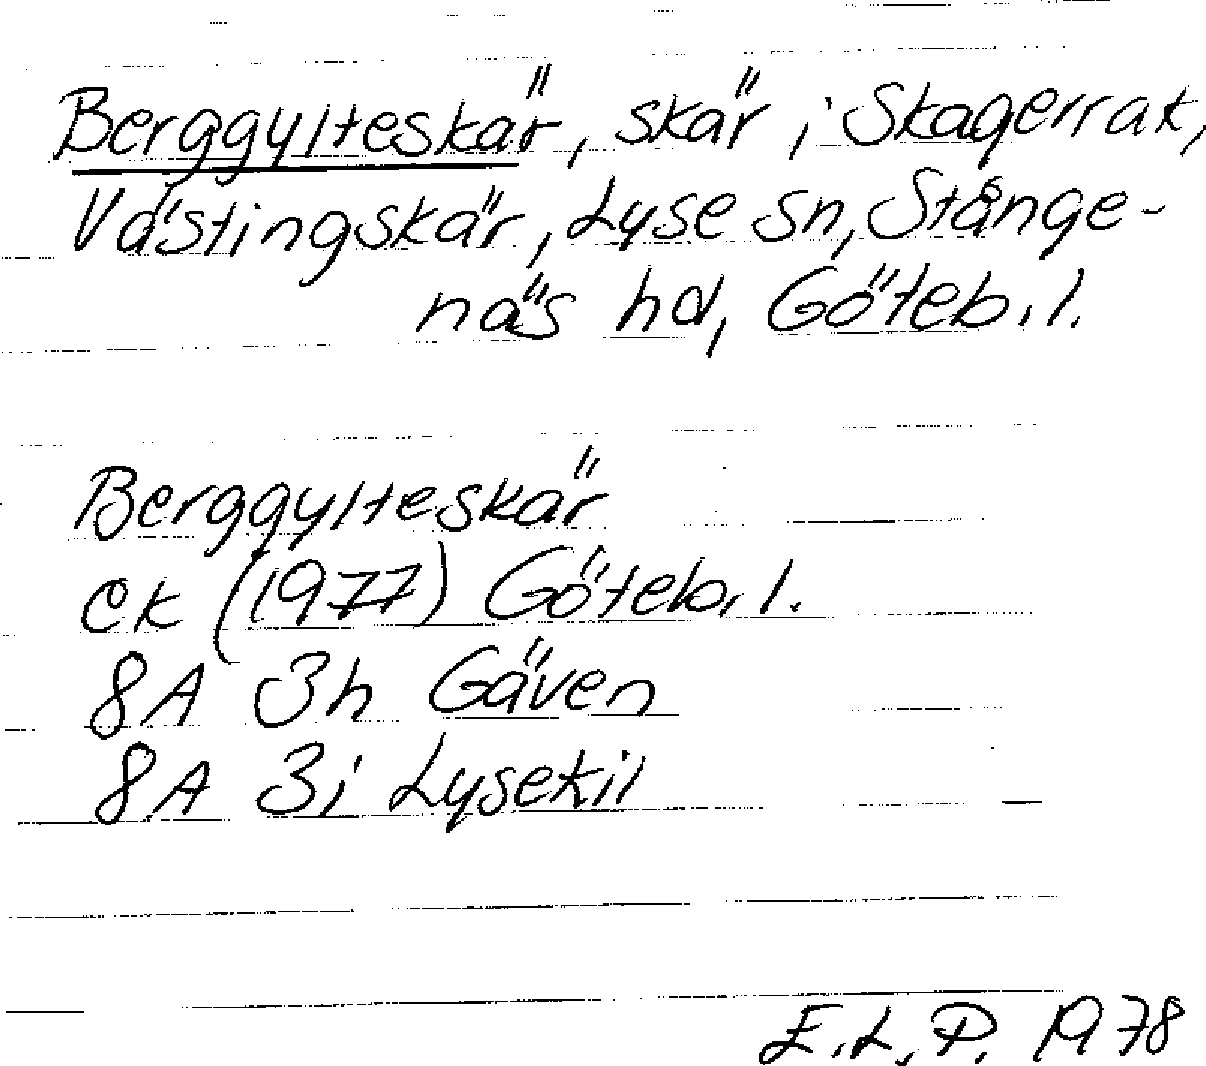 Berggylteskär, skär i Skagerrak,
Västingskär, Lyse sn, Stånge-
näs hd, Göteb. l.
Berggylteskär
ek (1977) Göteb. l.
8A 3h Gäven
8A 3i Lysekil
E.L.P. 1978